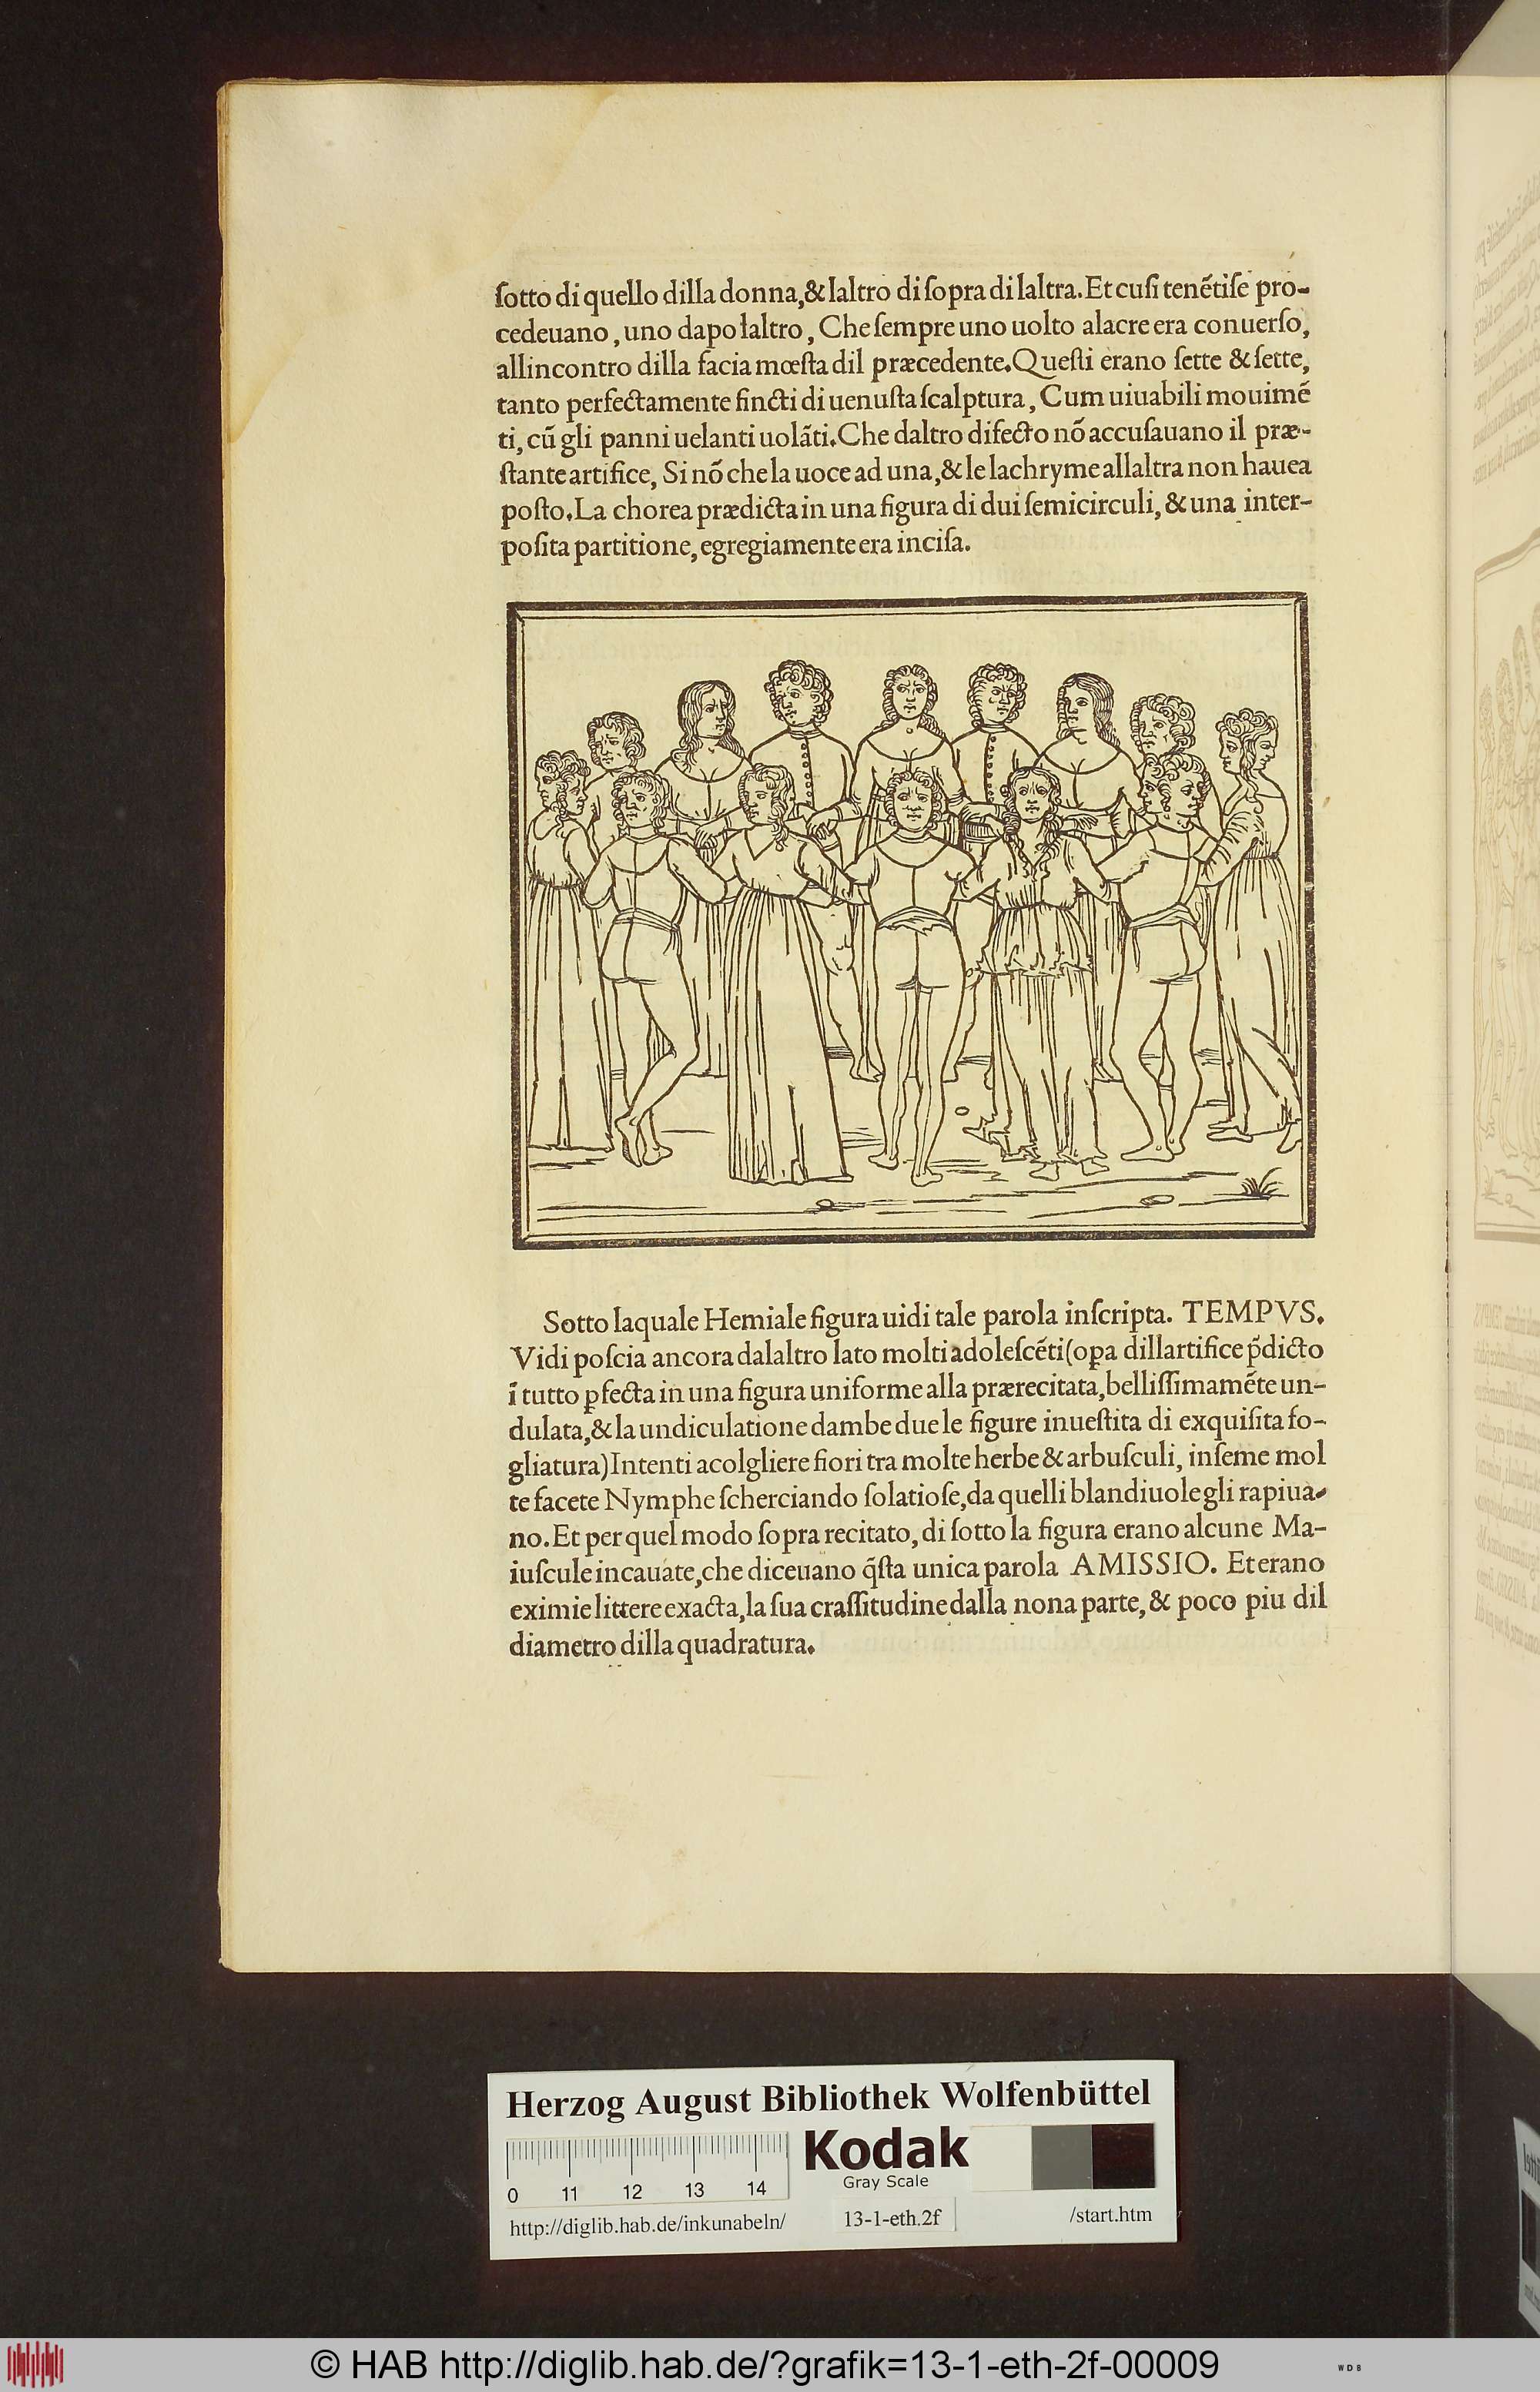 ſotto di quello dilla donna,& laltro di ſopra di laltra. Et cuſi tenẽtiſe pro-
cedeuano, uno dapo laltro, Che ſempre uno uolto alacre era conuerſo,
allincontro dilla facia mœſta dil præcedente. Queſti erano ſette & ſette,
tanto perfectamente fincti di uenuſta ſcalptura, Cum uiuabili mouimẽ
ti, cũ gli panni uelanti uolãti. Che daltro difecto nõ accuſauano il præ-
ſtante artifice, Si nõ che la uoce ad una,& le lachryme allaltra non hauea
poſto. La chorea prædicta in una figura di dui ſemicirculi, & una inter-
poſita partitione, egregiamente era inciſa.
Sotto laquale Hemiale figura uidi tale parola inſcripta. TEMPVS.
Vidi poſcia ancora dalaltro lato molti adoleſcẽti(opa dillartifice p̃dicto
ĩ tutto ꝑfecta in una figura uniforme alla prærecitata, belliſſimamẽte un-
dulata,& la undiculatione dambe due le figure inueſtita di exquiſita fo-
gliatura)Intenti a colgliere fiori tra molte herbe & arbuſculi, inſeme mol
te facete Nymphe ſcherciando ſolatioſe, da quelli blandiuole gli rapiua-
no. Et per quel modo ſopra recitato, di ſotto la figura erano alcune Ma-
iuſcule incauate, che diceuano q̃ſta unica parola AMISSIO. Et erano
eximie littere exacta, la ſua craſſitudine dalla nona parte, & poco piu dil
diametro dilla quadratura.
Herzog August Bibliothek Wolfenbüttel
Kodak
Gray Scale
0 11 12 13 14
http://diglib.hab.de/inkunabeln/ 13-1-eth.2f /start.htm
© HAB http://diglib.hab.de/?grafik=13-1-eth-2f-00009
WDB